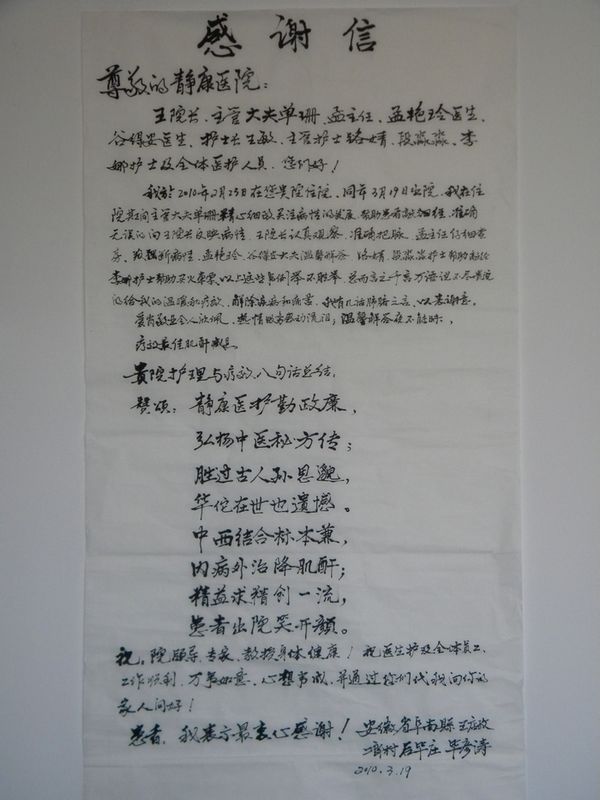 感谢信
尊敬的静康医院：
王院长、主管大夫单珊、孟主任、孟艳玲医生、
谷保安医生、护士长王敏、主管护士路婧、段淼淼、李
娜护士及全体医护人员、您们好！
我於2010年2月25日在您贵院住院、同年3月19日出院、我在住
院期间主管大夫单珊精心细致关注病情的发展、帮助患者 细经、准确
无误的向王院长反映病情、王院长认真观察、准确把脉、孟主任仔细
判断病性、孟艳玲、谷保安大夫温馨解答、路婧、段淼淼护士帮助
李娜护士帮助买火车票、以上这些事例举不胜举、总而言之千言万语说不尽贵院
的给我的温暖和疗效、解除疾病和痛苦、我有几话肺腑之言、以表谢意。
爱岗敬业令人欣佩、热情服务感动流泪；温馨解答在不能时、
疗效最佳肌酐
贵院护理与疗效、八句话总结、
赞颂：静康医护勤政廉，
弘扬中医秘方传；
胜过古人孙思邈，
华佗在世也遗憾。
中西结合标本兼，
内病外治降肌酐；
精益求精创一流，
患者出院笑开颜。
祝：院领导、专家、教授身体健康！祝医生护及全体员工、
工作顺利、万事如意、心想事成、并通过你们代我向你的
家人问好！
患者、我表示最衷心感谢！安徽省阜南县王店孜
乡村后毕庄 毕彦涛
2010.3.19